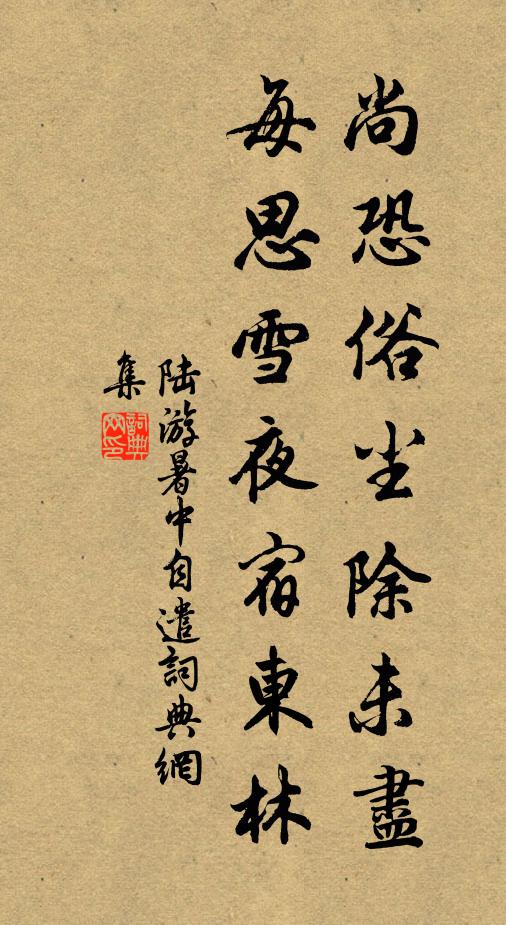 尚恐俗尘除未盡
每思雪夜宿東林
陆游暑中自遣詞典網
集
詞典網印